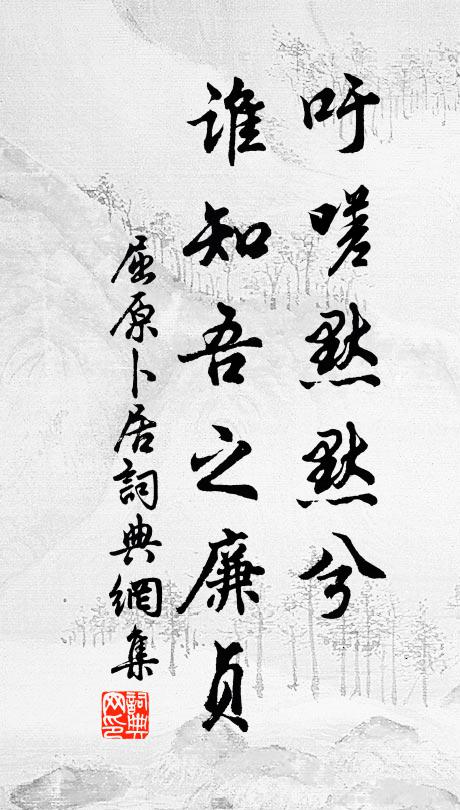 吁嗟默默兮
谁知吾之廉贞
屈原卜居詞典網集
詞典
网印